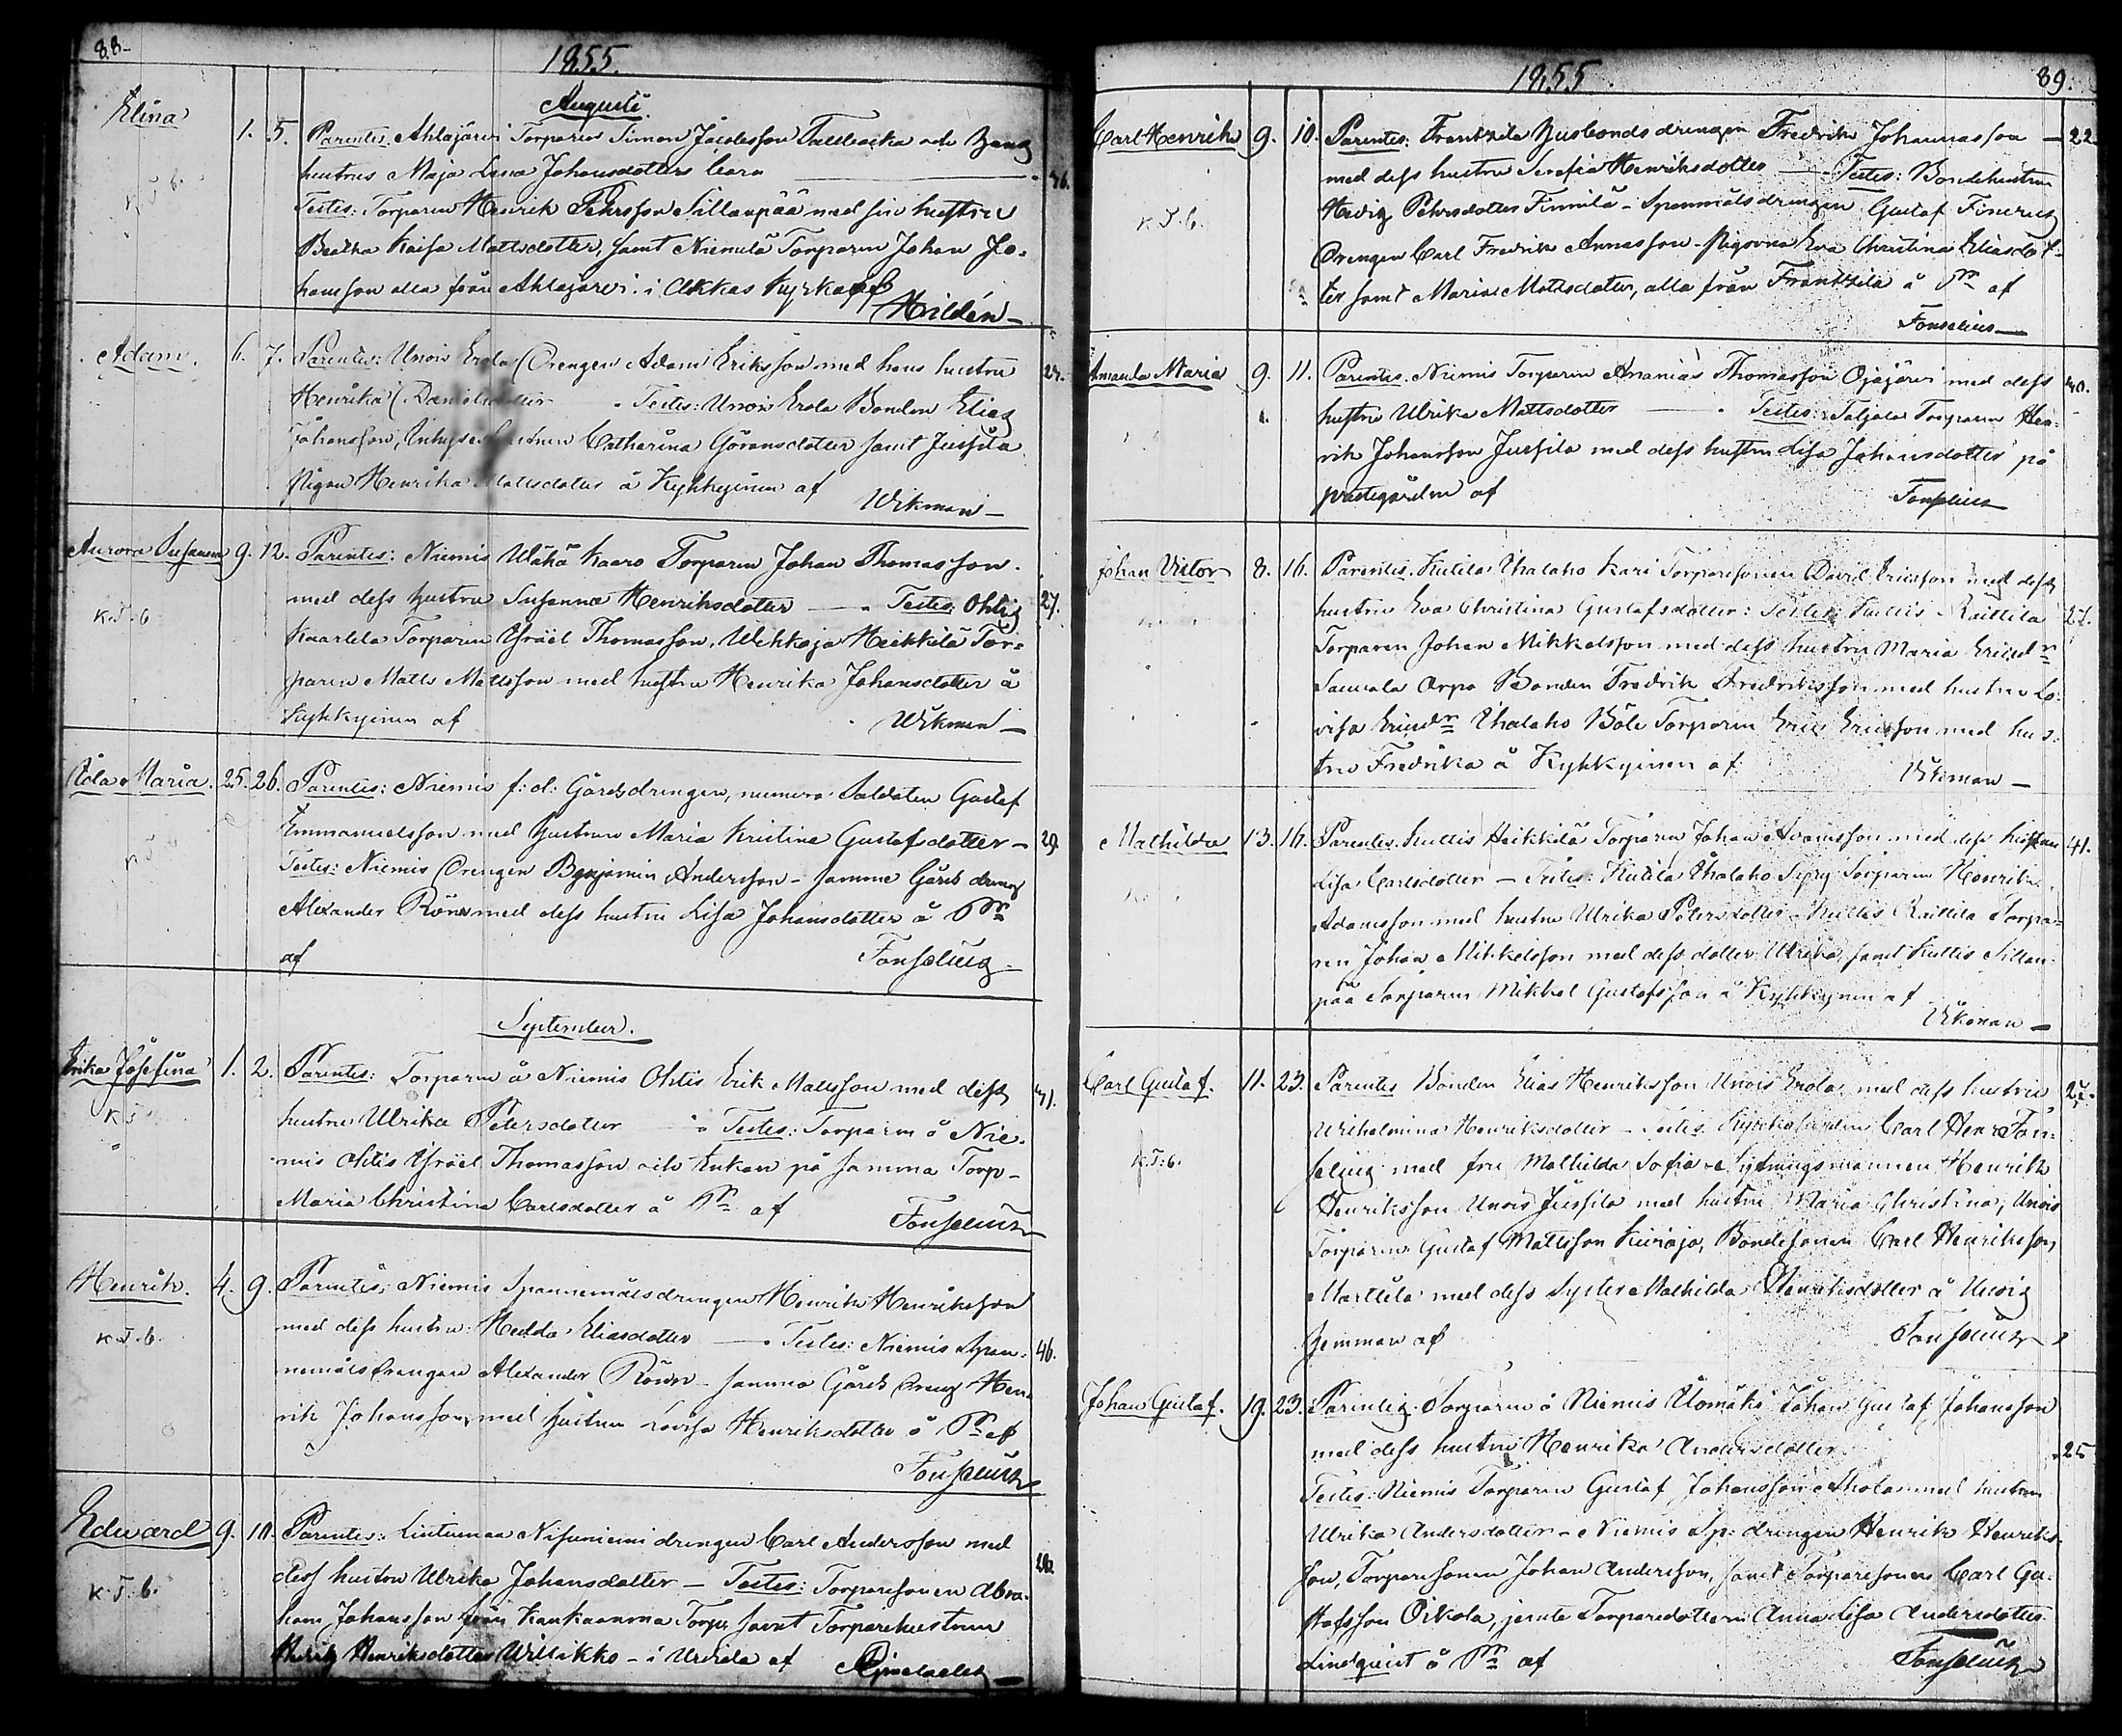 88.
1855.
Augusti.
Elina 1. 5. Parentes: Ahlajärvi Torparen Simon Jacobsson Tallbacka och hans
hustrus Maja Lena Johansdotters barn 46.
Testes: Torparen Henrik Pehrsson Sillanpää med sin hustru
Beatha Kaisa Mattsdotter, samt Niemelä Torparen Johan Jo-
hansson alla från Ahlajärvi i Akkas kyrka af
Hildén
Adam. 6. 7. Parentes: Unois Erola Drengen Adam Eriksson med hans hustru 27.
Henrika Danielsdotter Testes: Unois Erola Bonden Elias
Johansson, Inhyses hustrun Catharina Göransdotter samt Jussila
Pigan Henrika Mattsdotter å Kyhkyinen af Wikman
Aurora Susanna 9. 12. Parentes: Niemis Wähä Kaaro Torparen Johan Thomasson
K.T.6. med dess hustru Susanna Henriksdotter Testes: Ohtis 27.
Kaarlela Torparen Israel Thomasson, Heikkilä Tor-
paren Matts Mattsson med hustru Henrika Johansdotter å
Kyhkyinen af Wikman
Maria. 25. 26. Parentes: Niemis f: d: Gårdsdrengen, numera Soldaten Gustaf
Emmanuelsson med hustrun Maria Kristina Gustafsdotter 29.
Testes: Niemis Drengen Benjamin Andersson samma Gårds dreng
Alexander Rönn med dess hustru Lisa Johansdotter å Pn
af Fonselius
September.
Erika Josefina 1. 2. Parentes: Torparen å Niemis Ohtis Erik Mattsson med dess
K.T. hustru Ulrika Petersdotter Testes: Torparen å Nie-
mis Ohtis Israel Thomasson och Enkan på samma Torp
Maria Christina Carlsdotter å Pn af Fonselius
Henrik. 4. 9. Parentes: Niemis Spannemålsdrengen Henrik Henriksson
K.T.6. med dess hustru Hedda Eliasdotter Testes: Niemis Span- 46.
nemålsdrengen Alexander Rönn samma Gårds Dreng Hen-
rik Johansson med hustrun Lovisa Henriksdotter å Pn af
Fonselius
Edward 9. 10. Parentes: Liutumaa drengen Carl Andersson med
K.T.6. dess hustru Ulrika Johansdotter Testes: Torparesonen Abra-
ham Johansson från Kaukaanmaa Torp samt Torparehustrun
Hedvig Henriksdotter Willikko i Urdiala af
1855.
89.
Carl Henrik 9. 10. Parentes: Frantsila Husbondsdrengen Fredrik Johansson 22.
K.T.6. med dess hustru Serafia Henriksdotter Testes: Bondehustrun
Hedvig Pehrsdotter Finnilä Spanmålsdrengen Gustaf
Drengen Carl Fredrik Annasson Pigorna Eva Christina Eliasdot-
ter samt Maria Mattsdotter, alla från Frantsila å Pn af
Fonselius
Amanda Maria 9. 11. Parentes: Niemis Torparen Ananias Thomasson Ojajärvi med dess 40.
hustru Ulrika Mattsdotter Testes: Taljala Torparen Hen-
rik Johansson Jussila med dess hustru Lisa Johansdotter på
prestgården af Fonselius
Johan Victor 8. 16. Parentes: Kutila Uhalaho Kari Torparesonen David Ericsson med dess
hustru Eva Christina Gustafsdotter: Testes: Kullis Raittila 27.
Torparen Johan Mikkelsson med dess hustru Maria Ericsdr
Saurala Arpa Bonden Fredrik Fredriksson med hustru Lo-
visa Ericsdr Uhalaho Böle Torparen Eric Ericsson med hus-
tru Fredrika å Kyhkyinen af Wikman
Mathilda 13. 16. Parentes: Kullis Heikkilä Torparen Johan Adamsson med dess hustru 41.
Lisa Carlsdotter Testes: Kutila Uhalaho Torparen Henrik
Adamsson med hustru Ulrika Petersdotter Kullis Raittila Torpa-
ren Johan Mikkelsson med dess dotter Ulrika, samt Kullis Sillan-
pää Torparen Mikkel Gustafsson å Kyhkyinen af
Wikman
Carl Gustaf. 11. 23. Parentes: Bonden Elias Henriksson Unois Erola med dess hustru
K.T.6. Wilhelmina Henriksdotter Testes: Carl Henr. Fon-
selius med fru Mathilda Sofia Sytningsmannen Henrik
Henriksson Unois Jussila med hustru Maria Christina, Unois
Torparen Gustaf Mattsson Kuivaja, Bondesonen Carl Henriksson
Marttila med dess Syster Mathilda Henriksdotter å Unois
Hemman af Fonselius
Johan Gustaf. 19. 23. Parentes: Torparen å Niemis Alomäki Johan Gustaf Johansson
med dess hustru Henrika Andersdotter 25
Testes: Niemis Torparen Gustaf Johansson Ahola med hustrun
Ulrika Andersdotter Niemis Sp: drengen Henrik Henriks-
son, Torparesonen Johan Andersson, samt Torparesonen Carl Gu-
stafsson Oikola, jemte Torparedottern Anna Lisa Andersdotter
Lindquist å Pn af Fonselius